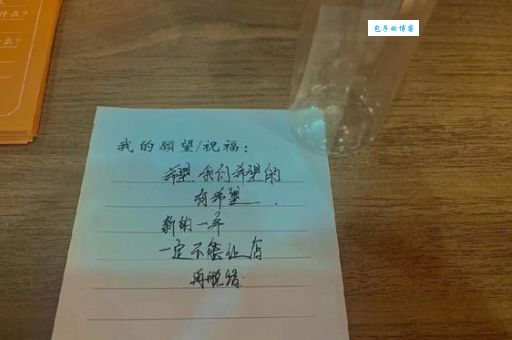 什么?
么?
包子的博客
我的愿望/祝福:
希望 我们希望的
有希望.
新的一年
一定不能让店
再脱错